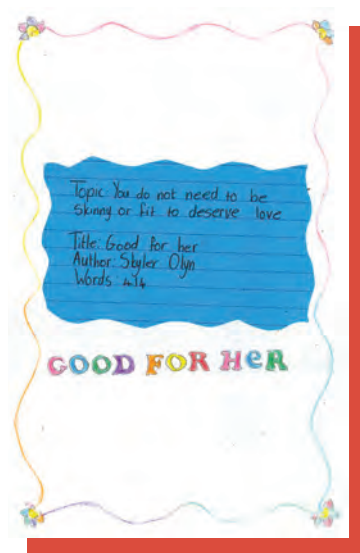 Topic: You do not need to be
skinny or fit to deserve love
Title: Good for her
Author: Skyler Olyn
Words: 414
GOOD FOR HeR